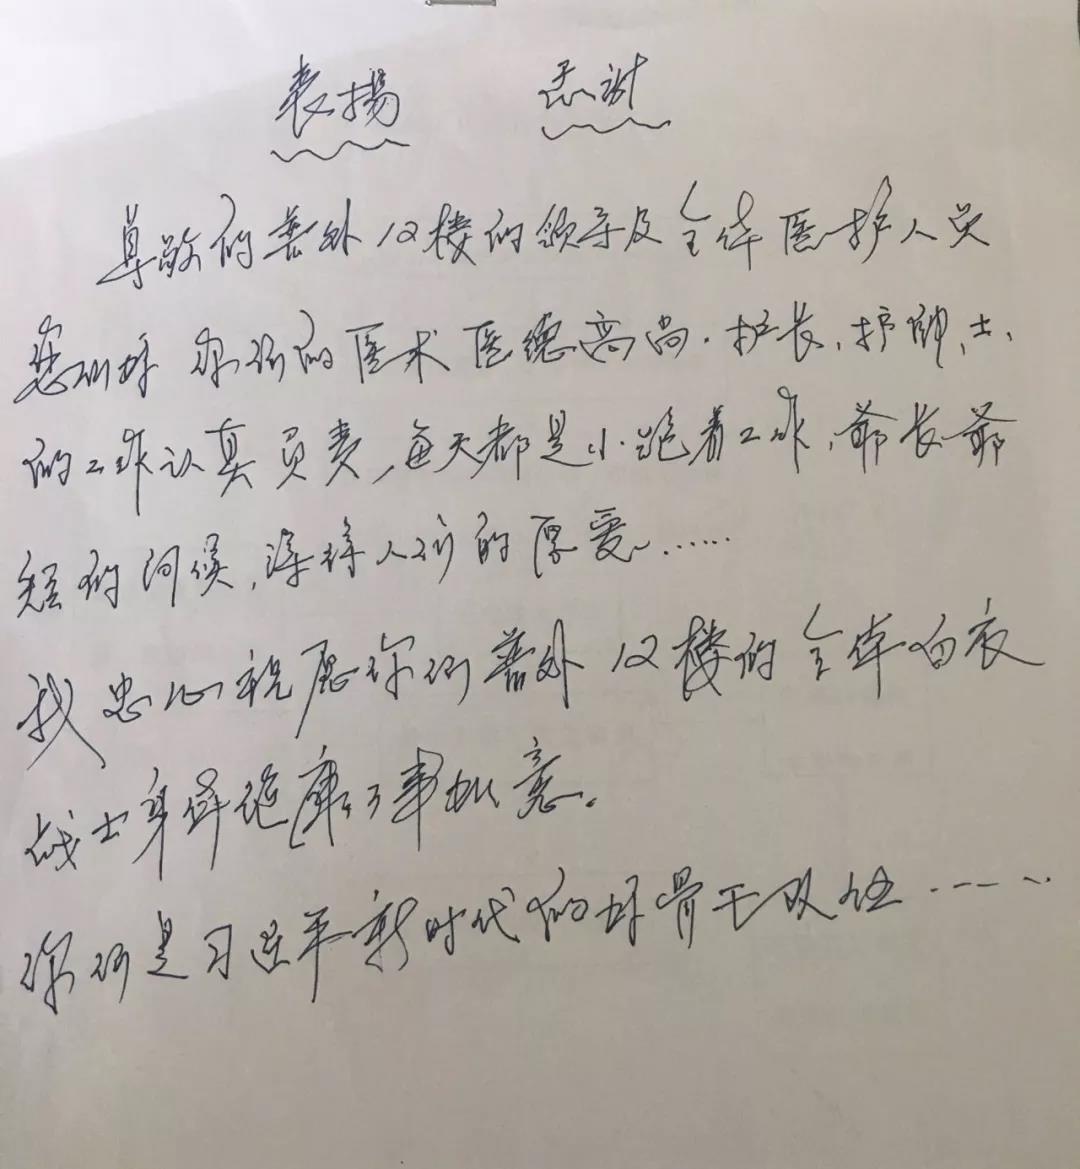 表揚 感谢
尊敬的普外12楼的领导及全体医护人员
您们好 你们的医术医德高尚.护长,护师,士,
的工作认真负责,每天都是小跑着工作,爺长爺
短的问候,深得人们的厚爱……
我忠心祝愿你们普外12楼的全体白衣
战士身体健康万事如意。
你们是习近平新时代的好骨干队伍……